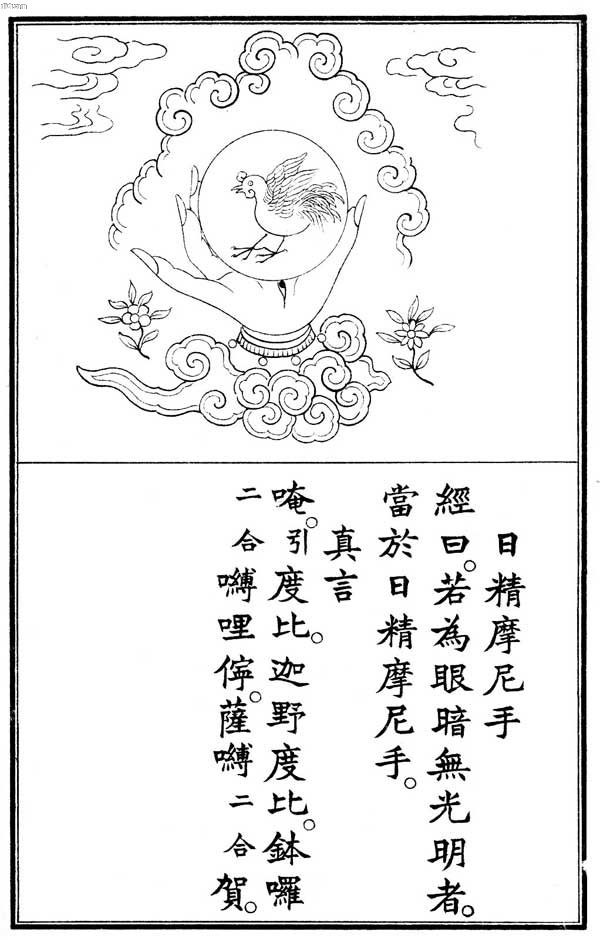 日精摩尼手
經曰。若為眼暗無光明者。
當於日精摩尼手。
真言
唵。引度比。迦野度比。鉢囉
二合嚩哩儜。薩嚩二合賀。